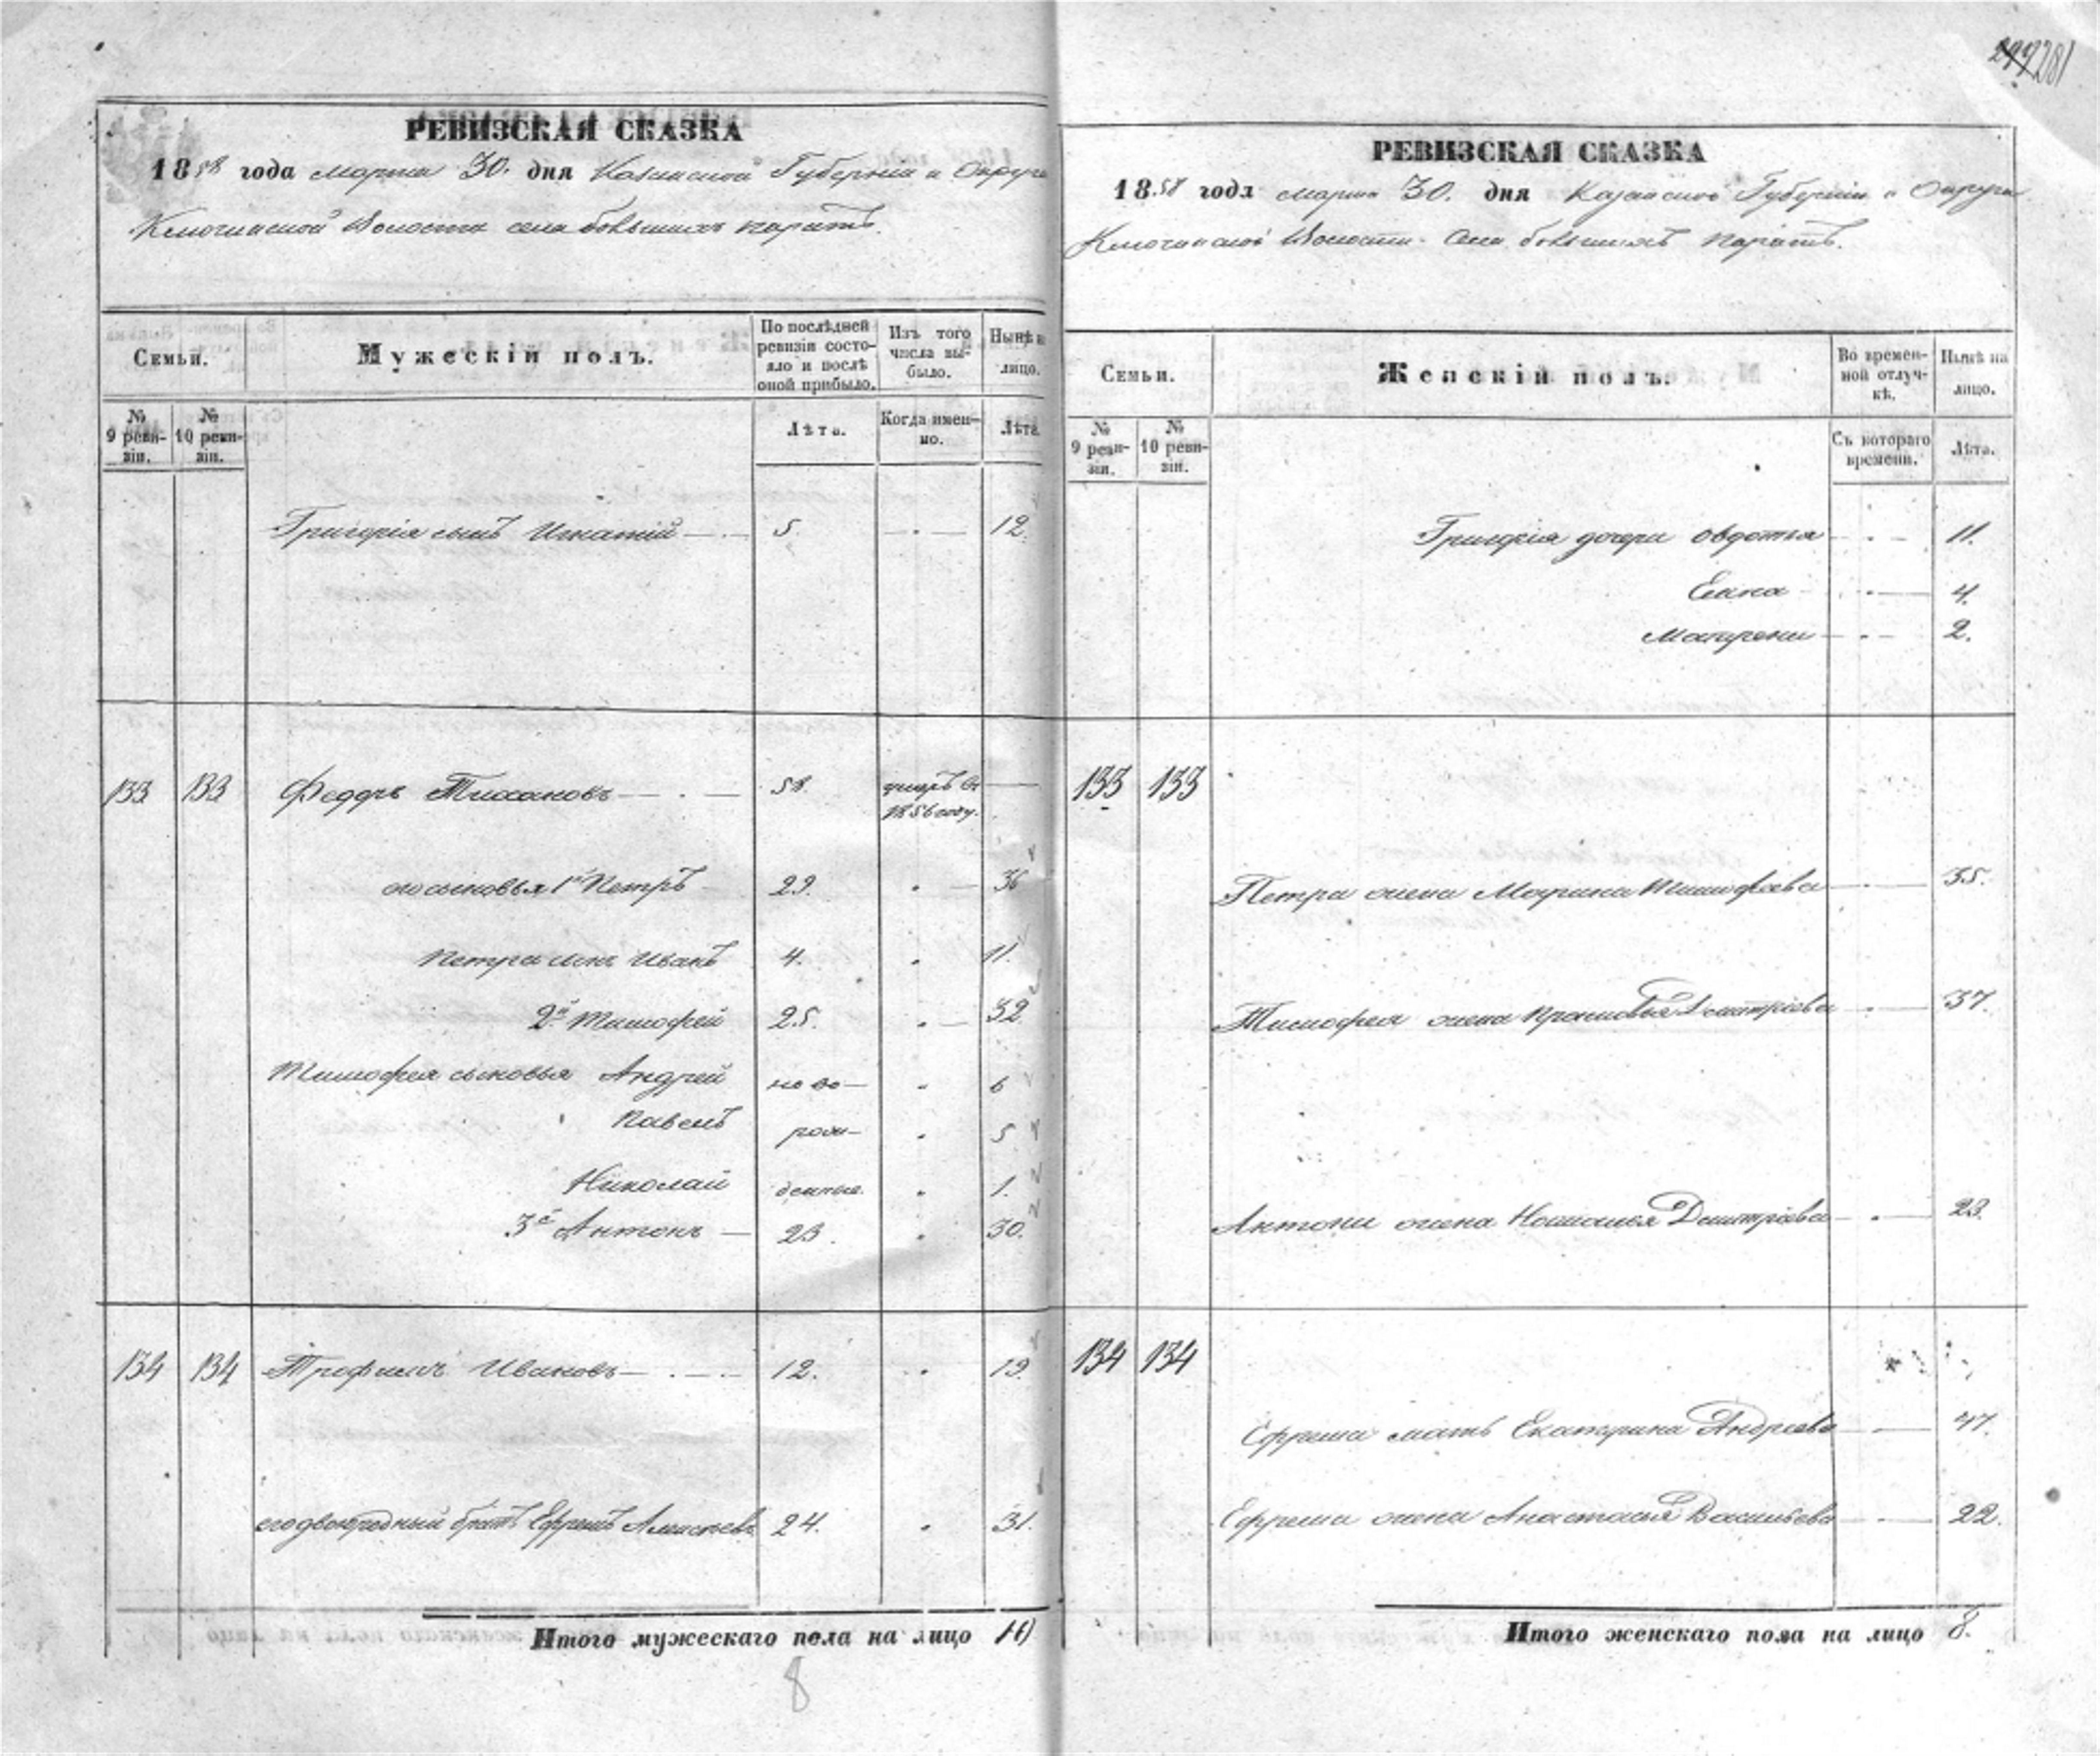 299 281
РЕВИЗСКАЯ СКАЗКА
1858 года марта 30. дня Казанской Губерніи и Округа
Ключинской Волости села большихъ паратъ.
Семьи.
Мужескій полъ.
По послѣдней ревизіи состояло и послѣ оной прибыло.
Изъ того числа выбыло.
Нынѣ на лицо.
№ 9 ревизіи.
№ 10 ревизіи.
Лѣта.
Когда именно.
Лѣта.
Григорія сынъ Игнатій 5. 12.
133 133 Федоръ Тихановъ 58. умеръ въ 1856 году.
его сыновья 1й Петръ 29. 36
Петра сынъ Иванъ 4. 11.
2й Тимофей 25. 32
Тимофея сыновья Андрей ново- 6
Павелъ рож- 5
Николай денные. 1.
3й Антонъ 23. 30.
134 134 Трофимъ Ивановъ 12. 19.
его двоюродный братъ Ефремъ 24. 31.
Итого мужескаго пола на лицо 10
8
РЕВИЗСКАЯ СКАЗКА
1858 года марта 30. дня Казанской Губерніи и Округа
Ключинской Волости. Села большихъ паратъ.
Семьи.
Женскій полъ.
Во временной отлучкѣ.
Нынѣ на лицо.
№ 9 ревизіи.
№ 10 ревизіи.
Съ котораго времени.
Лѣта.
Григорія дочери Овдотья 11.
Елена 4.
Матрена 2.
133 133
Петра жена Марина Тимофеева 35.
Тимофея жена Прасковья Дмитріева 37.
Антона жена Наталья Дмитріева 23.
134 134
Ефрема мать Екатерина Андреева 47.
Ефрема жена Анастасья Васильева 22.
Итого женскаго пола на лицо 8.